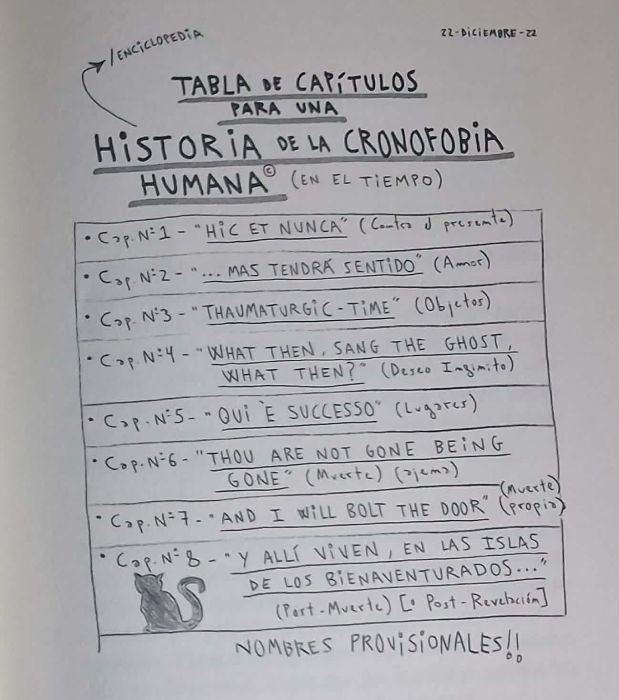 /ENCICLOPEDIA
22-DICIEMBRE-22
TABLA DE CAPÍTULOS
PARA UNA
HISTORIA DE LA CRONOFOBIA
HUMANA© (EN EL TIEMPO)
• Cap. Nº1 - "HIC ET NUNCA" (Contra el presente)
• Cap. Nº2 - "... MAS TENDRÁ SENTIDO" (Amor)
• Cap. Nº3 - "THAUMATURGIC-TIME" (Objetos)
• Cap. Nº4 - "WHAT THEN, SANG THE GHOST,
WHAT THEN?" (Deseo Infinito)
• Cap. Nº5 - "QUI È SUCCESSO" (Lugares)
• Cap. Nº6 - "THOU ARE NOT GONE BEING
GONE" (Muerte) (ajena)
• Cap. Nº7 - "AND I WILL BOLT THE DOOR" (Muerte)
(propia)
• Cap. Nº8 - "Y ALLÍ VIVEN, EN LAS ISLAS
DE LOS BIENAVENTURADOS..."
(Post-Muerte) [o Post-Revelación]
NOMBRES PROVISIONALES!!